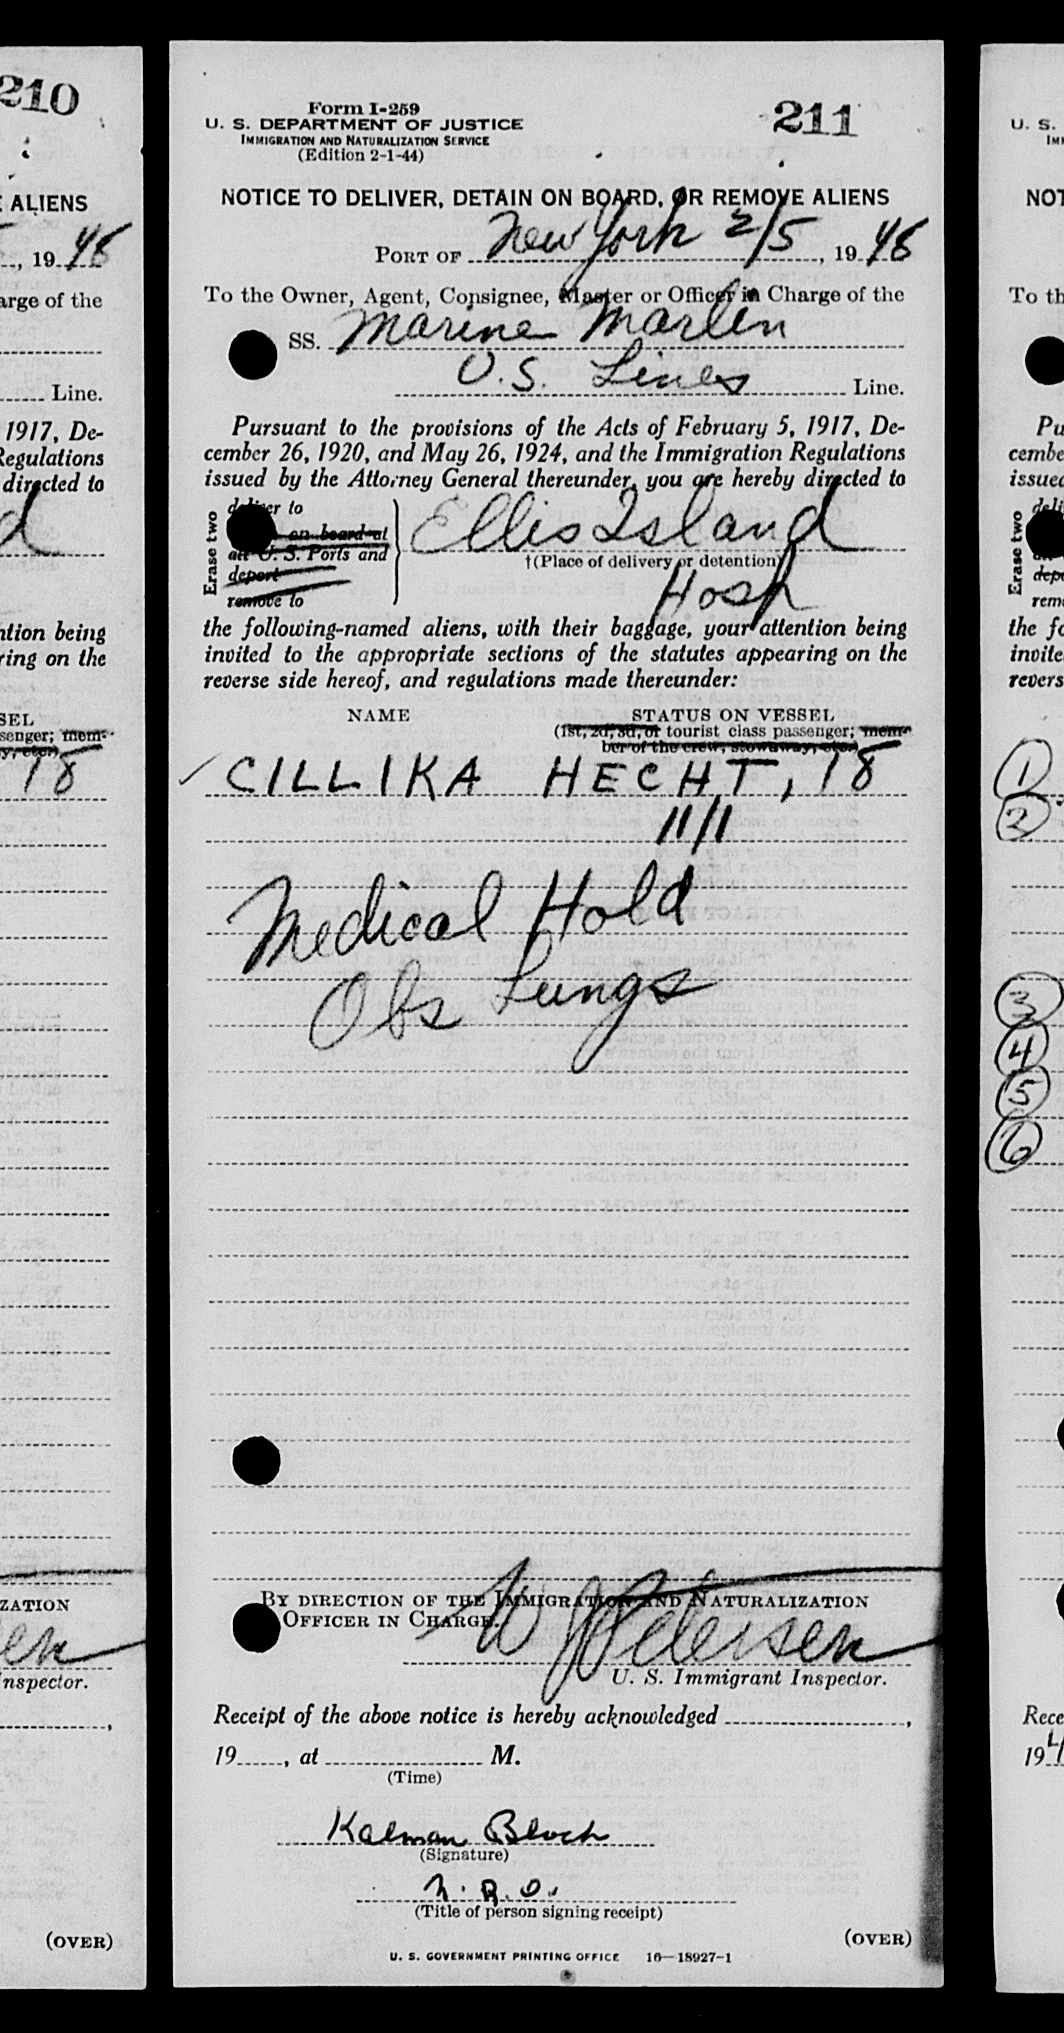 210
ALIENS
, 19 48
arge of the
Line.
1917, De-
Regulations
directed to
d
ntion being
ring on the
SEL
senger; mem-
y, etc.)
18
ZATION
en
nspector.
(OVER)
Form I-259
211
U. S. DEPARTMENT OF JUSTICE
IMMIGRATION AND NATURALIZATION SERVICE
(Edition 2-1-44)
NOTICE TO DELIVER, DETAIN ON BOARD, OR REMOVE ALIENS
PORT OF New York 2/5, 19 48
To the Owner, Agent, Consignee, Master or Officer in Charge of the
SS. Marine Marlin
U.S. Lines Line.
Pursuant to the provisions of the Acts of February 5, 1917, De-
cember 26, 1920, and May 26, 1924, and the Immigration Regulations
issued by the Attorney General thereunder, you are hereby directed to
Erase two
deliver to
on board at
all U. S. Ports and
deport
remove to
Ellis Island
†(Place of delivery or detention)
Hosp
the following-named aliens, with their baggage, your attention being
invited to the appropriate sections of the statutes appearing on the
reverse side hereof, and regulations made thereunder:
NAME STATUS ON VESSEL
(1st, 2d, 3d, or tourist class passenger; mem-
ber of the crew, stowaway, etc.)
✓ CILLIKA HECHT, 18
11/11
Medical Hold
Obs Lungs
BY DIRECTION OF THE IMMIGRATION AND NATURALIZATION
OFFICER IN CHARGE.
W Petersen
U. S. Immigrant Inspector.
Receipt of the above notice is hereby acknowledged ,
19 , at M.
(Time)
Kalman Bloch
(Signature)
(Title of person signing receipt)
(OVER)
U. S. GOVERNMENT PRINTING OFFICE 16—18927-1
U. S.
IM
NOT
To th
Pu
cembe
issued
Erase two
deli
depo
remo
the fo
invite
revers
1
2
3
4
5
6
Rece
19 4